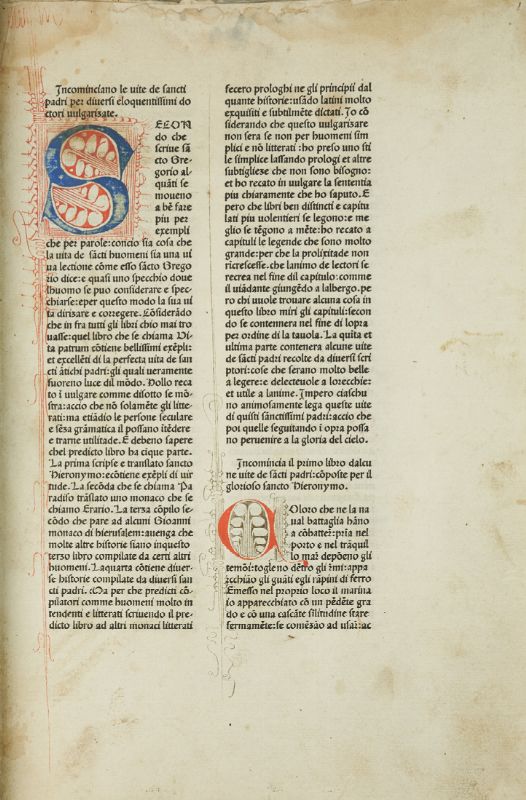 Incominciano le uite de sancti
padri per diuersi eloquentissimi do
ctori uulgarizate.
SECON
do che
scriue sā
cto Gre-
gorio al-
quāti se
moueno
a bē fare
piu per
exempli
che per parole:concio sia cosa che
la uita de sācti huomeni sia una ui
ua lectione cōme esso sācto Grego
rio dice:e quasi uno specchio doue
lhuomo se puo considerare e spec-
chiarse:eper questo modo la sua ui
ta dirizare e corregere. Cōsiderādo
che in fra tutti gli libri chio mai tro
uasse:quel libro che se chiama Vi-
ta patrum cōtiene bellissimi exēpli:
et excellēti de la perfecta uita de san
cti ātichi padri:gli quali ueramente
fuoreno luce dil mōdo. Hollo reca
to ī uulgare comme disotto se mō-
stra:accio che nō solamēte gli litte-
rati:ma etiādio le persone seculare
e sēza gramatica il possano ītēdere
e trarne utilitade. E debeno sapere
chel predicto libro ha cique parte.
La prima scripse e translato sancto
Hieronymo:ecōtiene exēpli di uir
tude. La secōda che se chiama Pa
radiso trāslato uno monaco che se
chiamo Erario. La terza cōpilo se-
cōdo che pare ad alcuni Gioanni
monaco di hierusalem:auenga che
molte altre historie siano inquesto
terzo libro compilate da certi altri
huomeni. La quarta cōtiene diuer-
se historie compilate da diuersi san
cti padri. Ma per che predicti cō-
pilatori comme huomeni molto in
tendenti e litterati scriuendo il pre-
dicto libro ad altri monaci litterati
fecero prologhi ne gli principii dal
quante historie:usādo latini molto
exquisiti e subtilmēte dictati. Io cō
siderando che questo uulgarizare
non sera se non per huomeni sim
plici e nō litterati:ho preso uno sti
le simplice lassando prologi et altre
subtigliese che non sono bisogno:
et ho recato in uulgare la sententia
piu chiaramente che ho saputo. E
pero che libri ben distincti e capitu
lati piu uolentieri se legono:e me
glio se tēgono a mēte:ho recato a
capituli le legende che sono molto
grande:per che la prolixitade non
ricrescesse.che lanimo de lectori se
recrea nel fine dil capitulo:comme
il uiādante giungēdo a lalbergo.pe
ro chi uuole trouare alcuna cosa in
questo libro miri gli capituli:secon
do se contennera nel fine di lopra
per ordine di la tauola. La quīta et
ultima parte contenera alcune uite
de sācti padri recolte da diuersi scri
ptori:cose che serano molto belle
a legere:e delecteuole a lorecchie:
et utile a lanime. Impero ciaschu
no animosamente lega queste uite
di quisti sanctissimi padri:accio che
poi quelle seguitando ī opra possa
no peruenire a la gloria del cielo.
Incomincia il primo libro dalcu
ne uite de sācti padri:cōposte per il
glorioso sancto Hieronymo.
COloro che ne la na
ual battaglia hāno
a cōbatter:pria nel
porto e nel trāquil
lo mar depōeno gli
temōi:togleno dētro gli rmi:appa
recchiāo gli guāti egli rāpini di ferro
Emesso nel proprio loco il marina
io apparecchiato cō un pēdēte gra
do e cō una cascāte slitudine stare
fermamēte:se comēzāo ad usar:ac